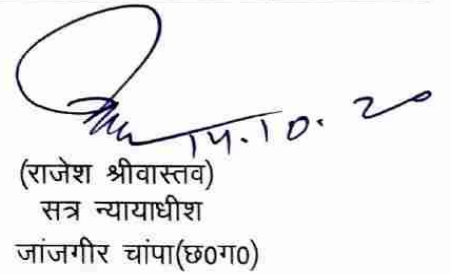 14.10.20
(राजेश श्रीवास्तव)
सत्र न्यायाधीश
जांजगीर चांपा(छ०ग०)